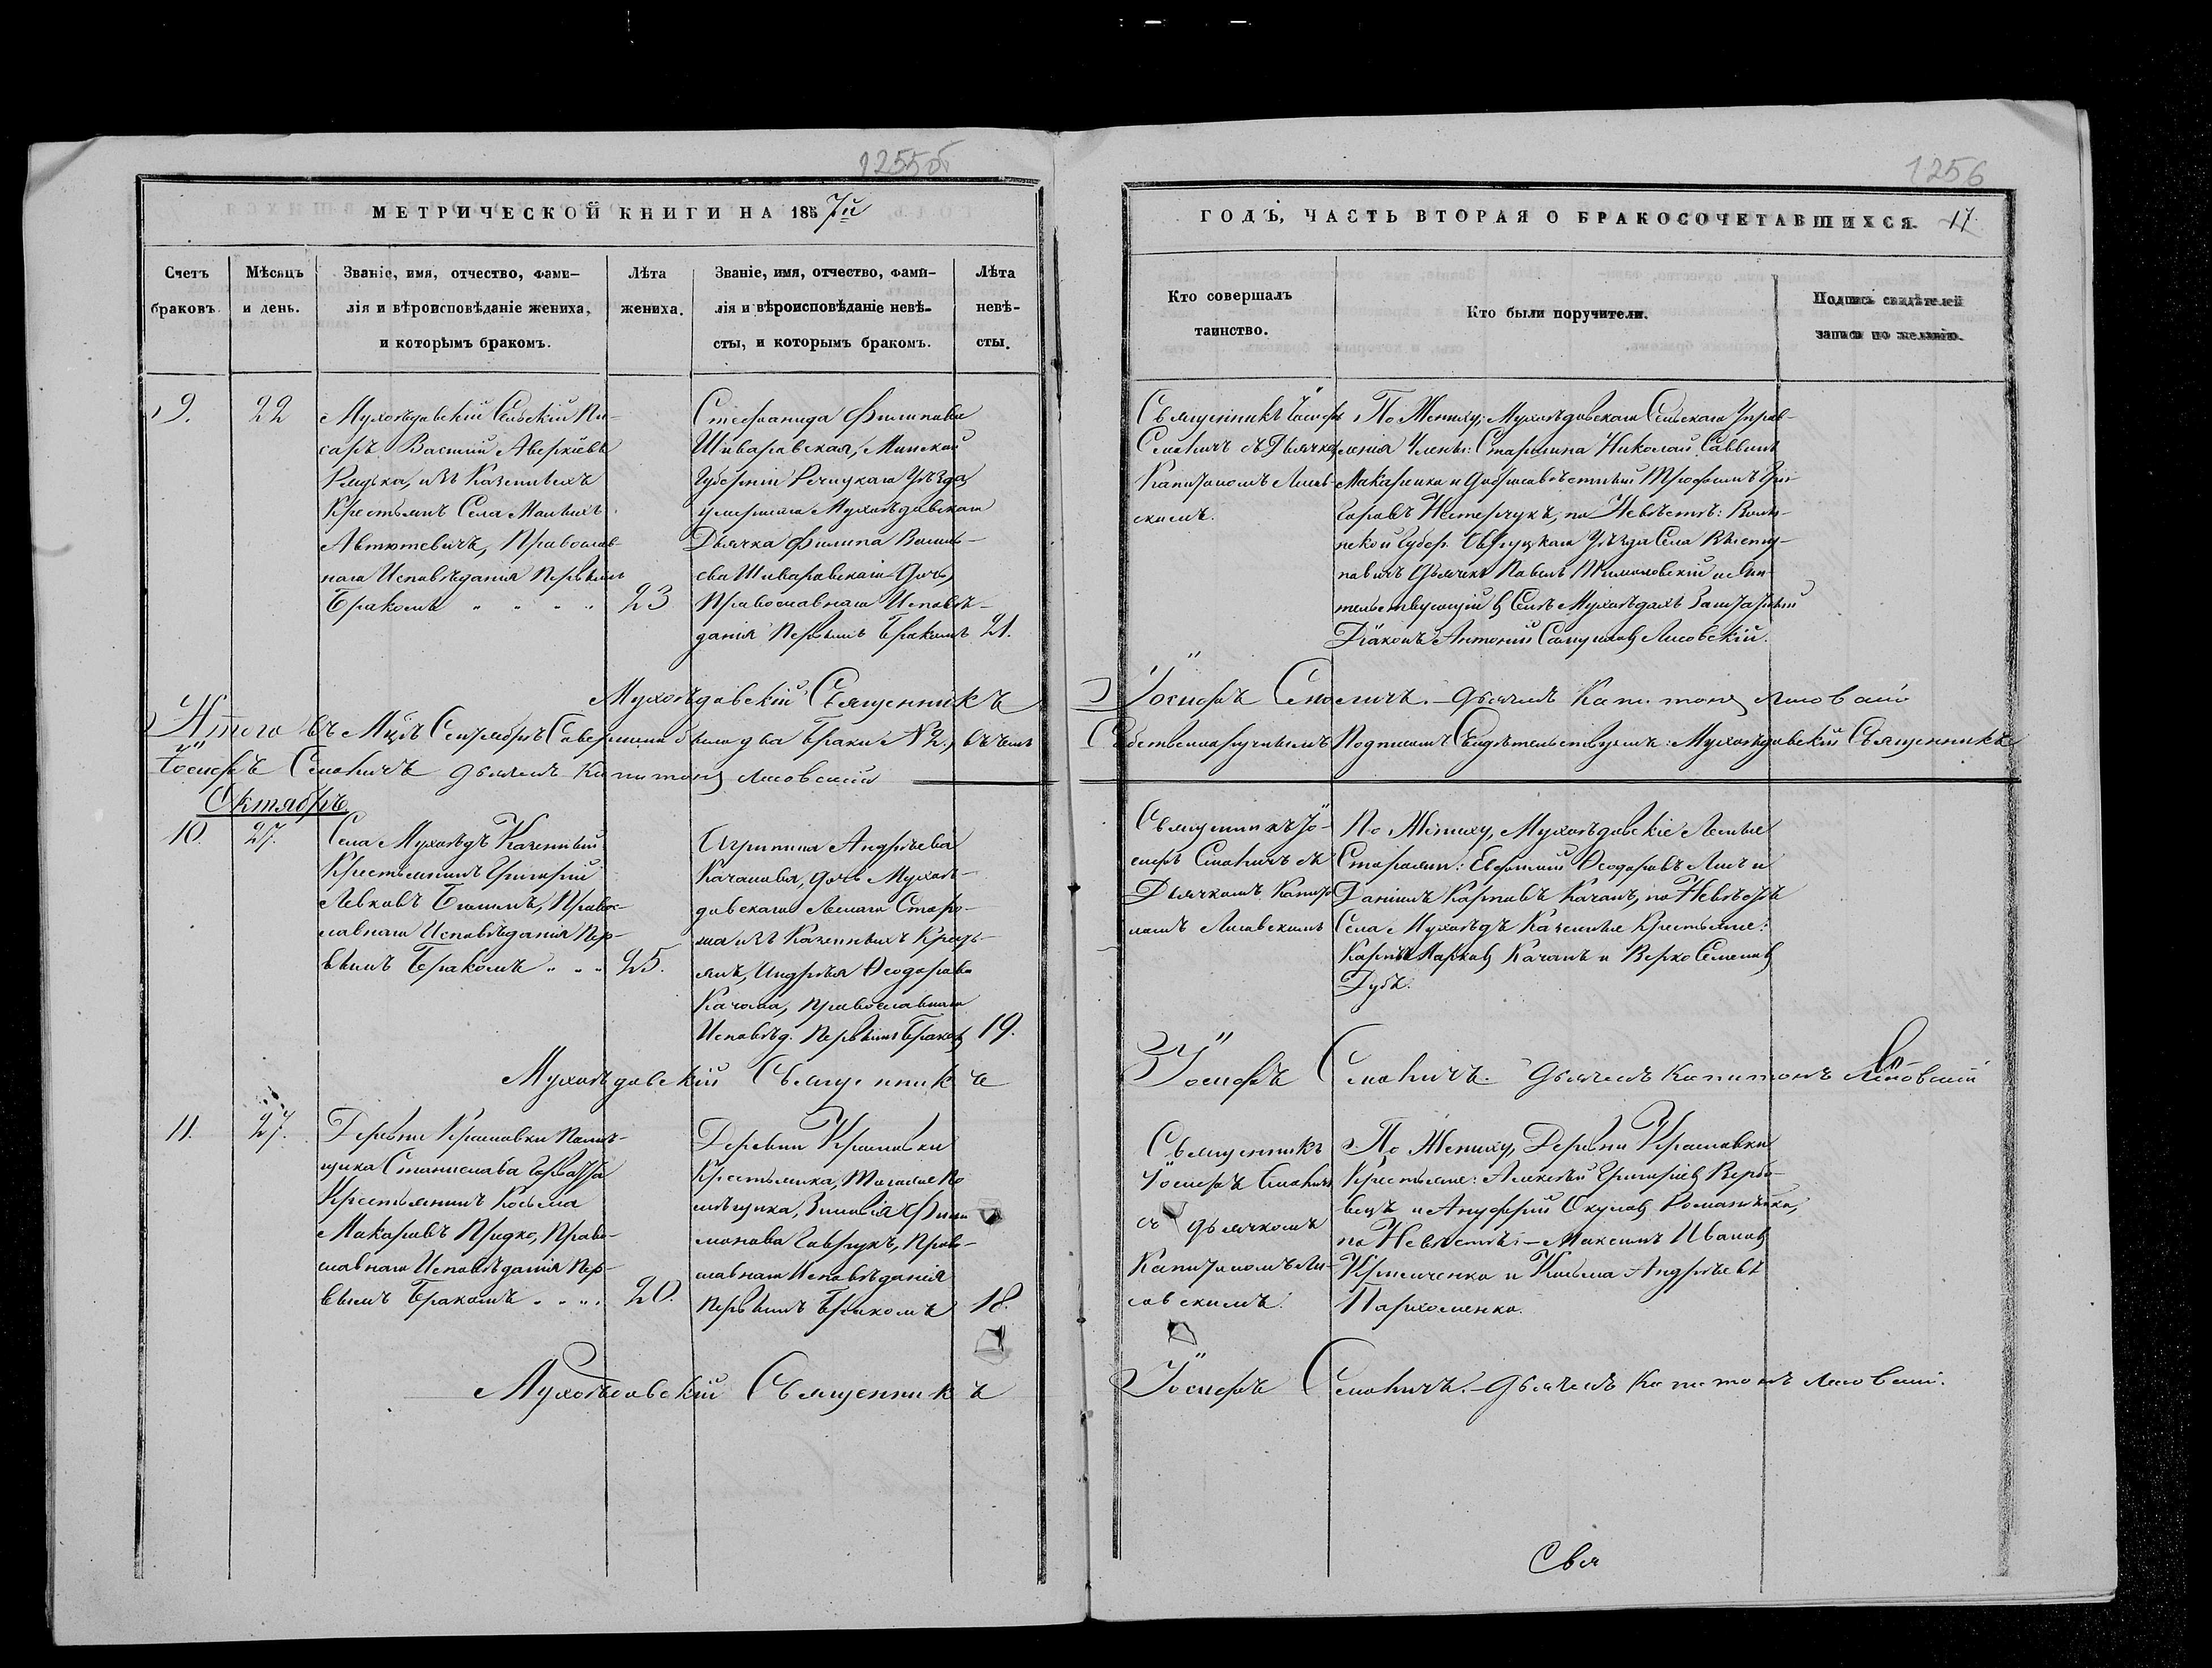 1255об
МЕТРИЧЕСКОЙ КНИГИ НА 1857й
Счетъ браковъ.
Мѣсяцъ и день.
Званіе, имя, отчество, фами-
лія и вѣроисповѣданіе жениха,
и которымъ бракомъ.
Лѣта
жениха.
Званіе, имя, отчество, фами-
лія и вѣроисповѣданіе невѣ-
сты, и которымъ бракомъ.
Лѣта
невѣ-
сты.
9.
22
Мухоѣдовскій Сельскій Пи-
сарь Василій Аверкіевъ
изъ Казенныхъ
Крестьянъ Села Малыхъ
Автютевичъ, Православ-
наго Исповѣданія Первымъ
Бракомъ
23
Стефанида Филипова
Шиваровская, Минской
Губерніи Речицкаго Уѣзда
умершаго Мухоѣдовскаго
Дьячка Филипа Василь-
ева Шиваровскаго Дочь,
Православнаго Исповѣ-
данія Первымъ Бракомъ
21.
Мухоѣдовскій Священникъ
Итого въ Мцѣ Сентябрѣ Совершено было два Брака № 2, въ чемъ
Іосифъ Смоличъ дьячекъ Капитонъ Лисовскій
Октябрь
10.
27.
Села Мухоѣдъ Казенный
Крестьянинъ Григорій
Левковъ Православ-
наго Исповѣданія Пер-
вымъ Бракомъ
25.
Агрипина Андрѣева
Качанова, дочь Мухоѣ-
довскаго Леснаго Сторо-
жа изъ Казенныхъ Кресть-
янъ, Андрѣя Ѳеодорова
Качана, Православнаго
Исповѣд. Первымъ Браком
19.
Мухоѣдовскій Священникъ
11.
27.
Деревни Крашовки Помѣ-
щика Станислава
Крестьянинъ Косьма
Макаровъ Придко, Право-
славнаго Исповѣданія Пер-
вымъ Бракомъ
20.
Деревни Крашовки
Крестьянка, Тогоже По
мѣщика, Зиновія Фили
монова Гаврукъ, Право-
славнаго Исповѣданія
Первымъ Бракомъ
18.
Мухоѣдовскій Священникъ
1256
ГОДЪ, ЧАСТЬ ВТОРАЯ О БРАКОСОЧЕТАВШИХСЯ.
17.
Кто совершалъ
таинство.
Кто были поручители.
Подпись свидѣтелей
записи по желанію.
Священникъ Іосифъ
Смоличъ съ Дьячкомъ
Капитономъ Лисов-
скимъ.
По Жениху: Мухоѣдовскаго Сельскаго Управ-
ленія Члены: Старшина Николай Саввинъ
Макаренко и Добросовѣстный Трофимъ Гри
горовъ Нестерчукъ, по Невѣстѣ: Волын-
ской Губер. Овруцкаго Уѣзда Села
Дьячекъ Павелъ и Жи-
тельствующій въ Селѣ Мухоѣдахъ Заштатный
Діаконъ Антоній Самуилов Лисовскій.
Іосифъ Смоличъ. Дьячекъ Капитонъ Лисовскій
Собственноручнымъ Подписомъ Свидѣтельствуемъ: Мухоѣдовскій Священникъ
Священникъ Іо-
сифъ Смоличъ съ
Дьячкомъ Капито
номъ Лисовскимъ
По Жениху, Мухоѣдовскіе Лесные
Сторожи: Евфимій Ѳеодоровъ и
Даніилъ Карповъ Качанъ, по Невѣстѣ
Села Мухоѣдъ Казенные Крестьяне:
Карпъ Марков Качанъ и Верко Семенов
Дубъ.
Іосифъ Смоличъ. Дьячекъ Капитонъ Лисовскій
Священникъ
Іосифъ Смоличъ
съ дьячкомъ
Капитономъ Ли-
совскимъ.
По Жениху, Деревни Крашовки
Крестьяне: Алексѣй Григоріев Верби-
вецъ и Ануфрій Окулов Романенко,
по Невѣстѣ: Максимъ Иванов
и Косьма Андрѣевъ
Пархоменко.
Іосифъ Смоличъ. Дьячекъ Капитонъ Лисовскій.
Свя